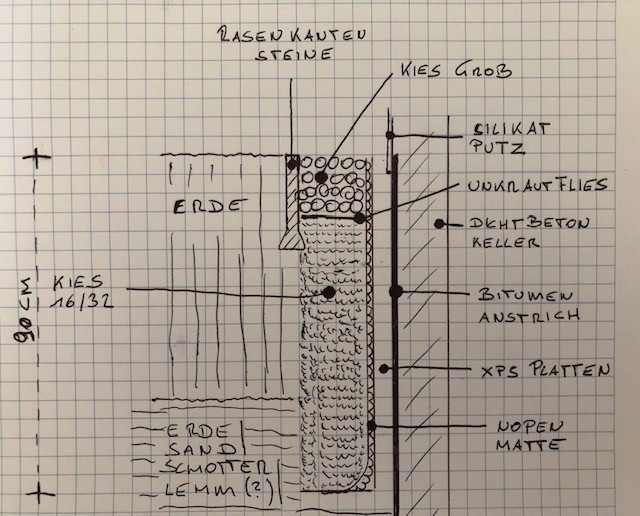 RASENKANTEN
STEINE
KIES GROB
SILIKAT
PUTZ
UNKRAUTFLIES
ERDE
DEHTBETON
KELLER
90 CM
KIES
16/32
BITUMEN
ANSTRICH
XPS PLATTEN
NOPEN
MATTE
ERDE
SAND
SCHOTTER
LEMM (?)